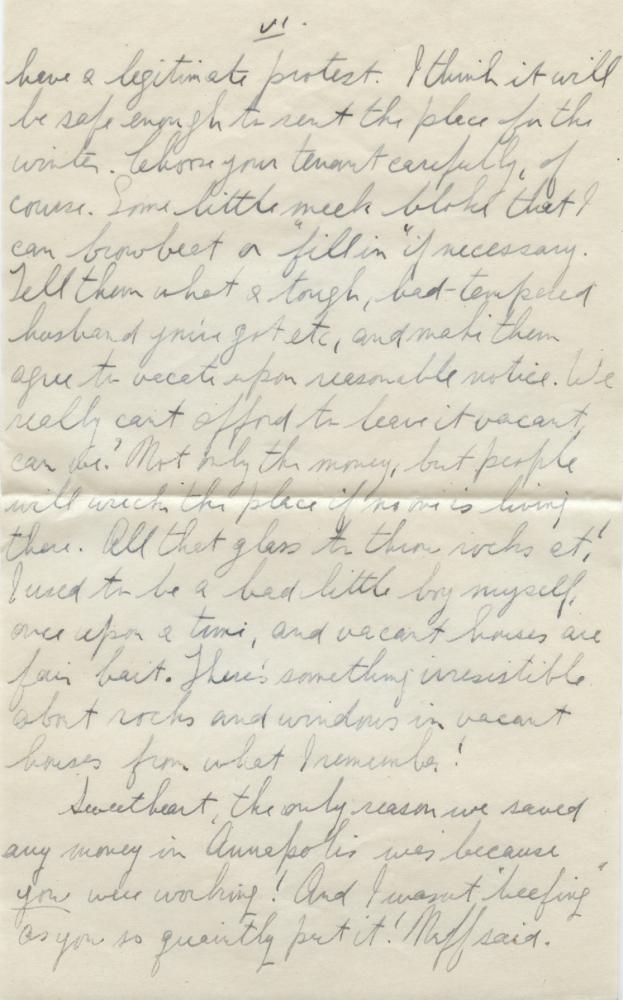 vi.
have a legitimate protest. I think it will
be safe enough to rent the place for the
winter. Choose your tenant carefully, of
course. Some little meek bloke that I
can browbeat or "fill in" if necessary.
Tell them what a tough, bad-tempered
husband you've got etc, and make them
agree to vacate upon reasonable notice. We
really can't afford to leave it vacant,
can we? Not only the money, but people
will wreck the place if no one is living
there. All that glass to throw rocks at!
I used to be a bad little boy myself,
once upon a time, and vacant houses are
fair bait. There's something irresistible
about rocks and windows in vacant
houses from what I remember!
Sweetheart, the only reason we saved
any money in Annapolis was because
you were working! And I wasn't "beefing"
as you so quaintly put it! Nuff said.